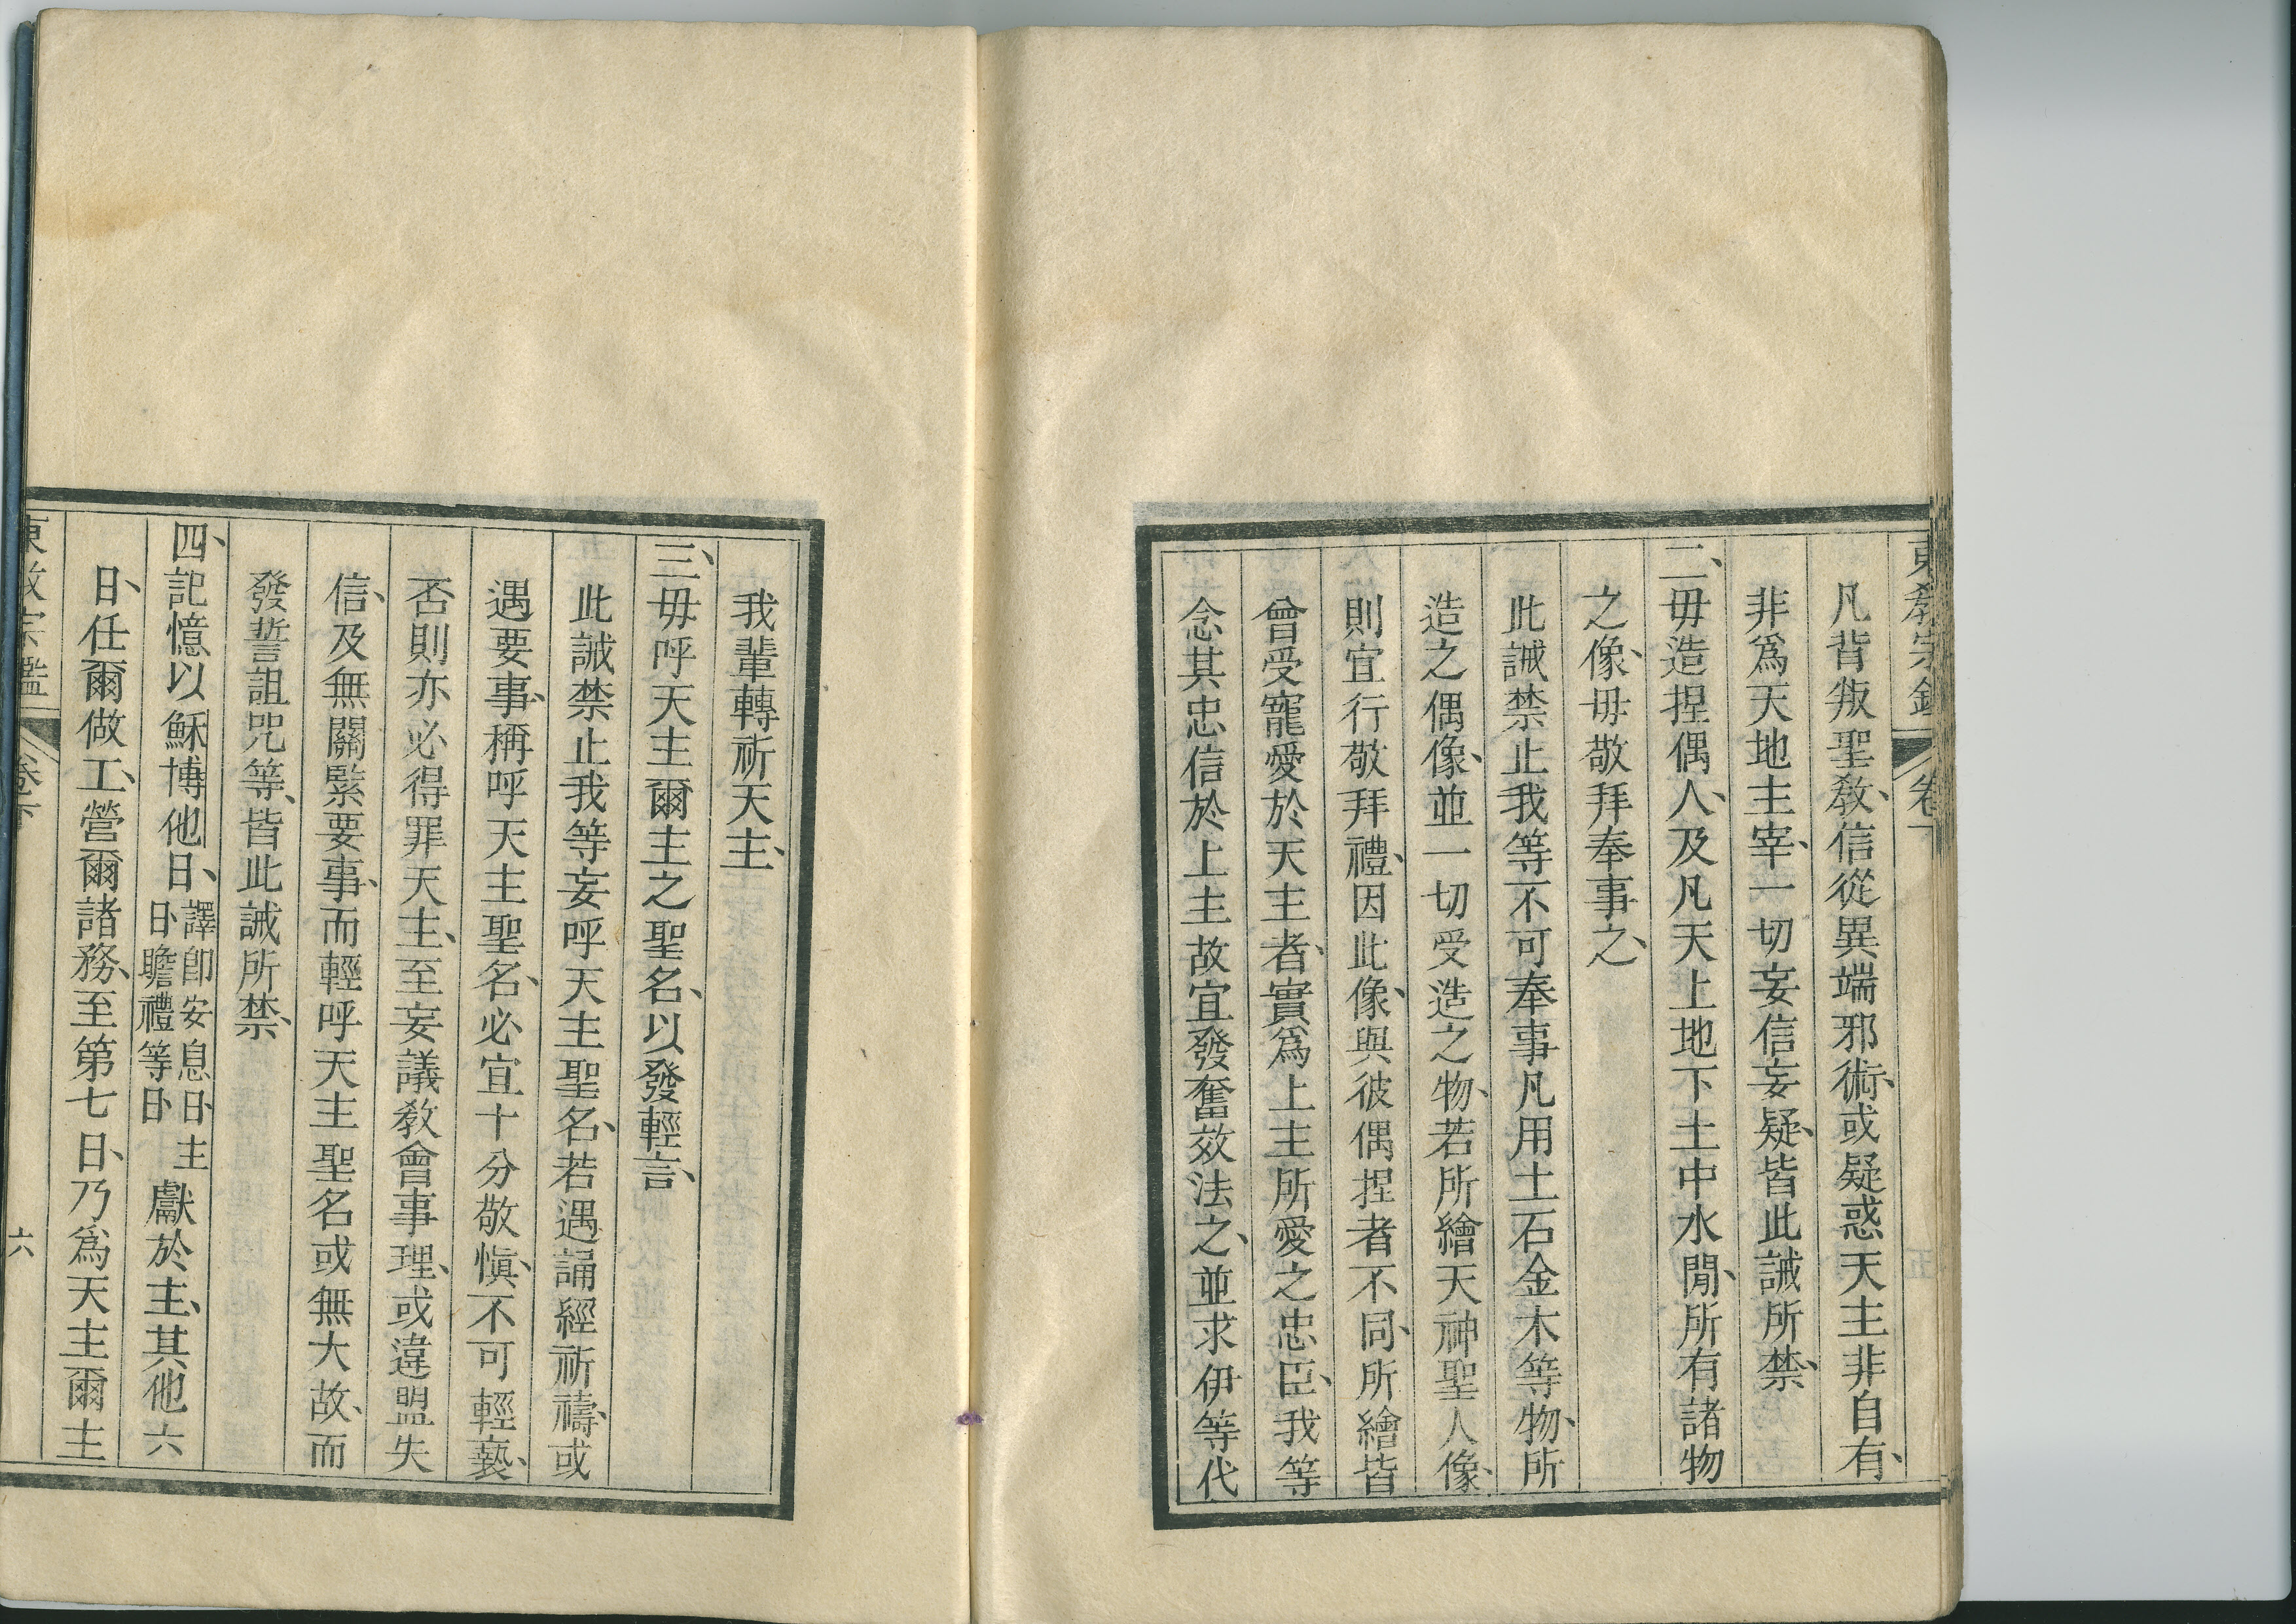 東敎宗鑑 卷下
凡背叛聖敎、信從異端邪術、或疑惑天主非自有、
非爲天地主宰、一切妄信妄疑、皆此誡所禁、
二、毋造捏偶人、及凡天上地下土中水閒、所有諸物
之像、毋敬拜奉事之、
此誡禁止我等不可奉事凡用土石金木等物、所
造之偶像、並一切受造之物、若所繪天神聖人像、
則宜行敬拜禮、因此像、與彼偶捏者不同、所繪皆
曾受寵愛於天主者、實爲上主所愛之忠臣、我等
念其忠信於上主故宜發奮效法之、並求伊等代
我輩轉祈天主、
三、毋呼天主爾主之聖名、以發輕言、
此誡禁止我等妄呼天主聖名、若遇誦經祈禱、或
遇要事、稱呼天主聖名、必宜十分敬愼、不可輕褻、
否則亦必得罪天主、至妄議敎會事理、或違盟失
信、及無關緊要事、而輕呼天主聖名或無大故、而
發誓詛咒等、皆此誡所禁、
四、記憶以穌博他日、譯卽安息日主日瞻禮等日獻於主、其他六
日、任爾做工、營爾諸務、至第七日、乃爲天主爾主
東敎宗鑑 卷下 六